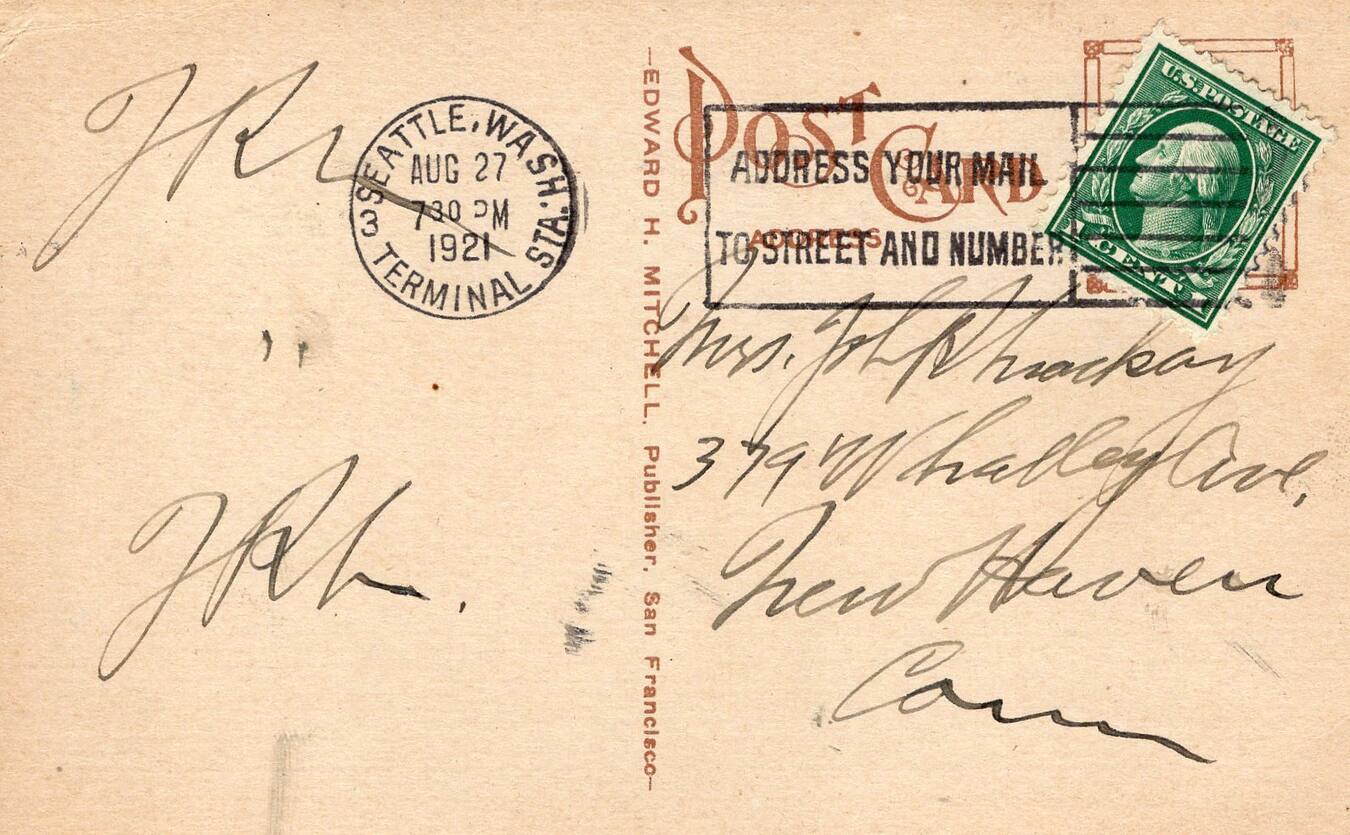 SEATTLE, WASH.
AUG 27
730 PM
1921
3 TERMINAL STA.
—EDWARD H. MITCHELL, Publisher, San Francisco—
POST CARD
ADDRESS
ADDRESS YOUR MAIL
TO STREET AND NUMBER
U.S. POSTAGE
1 CENT 1
Mrs. Joh R
379 Whalley Ave,
New Haven
Conn